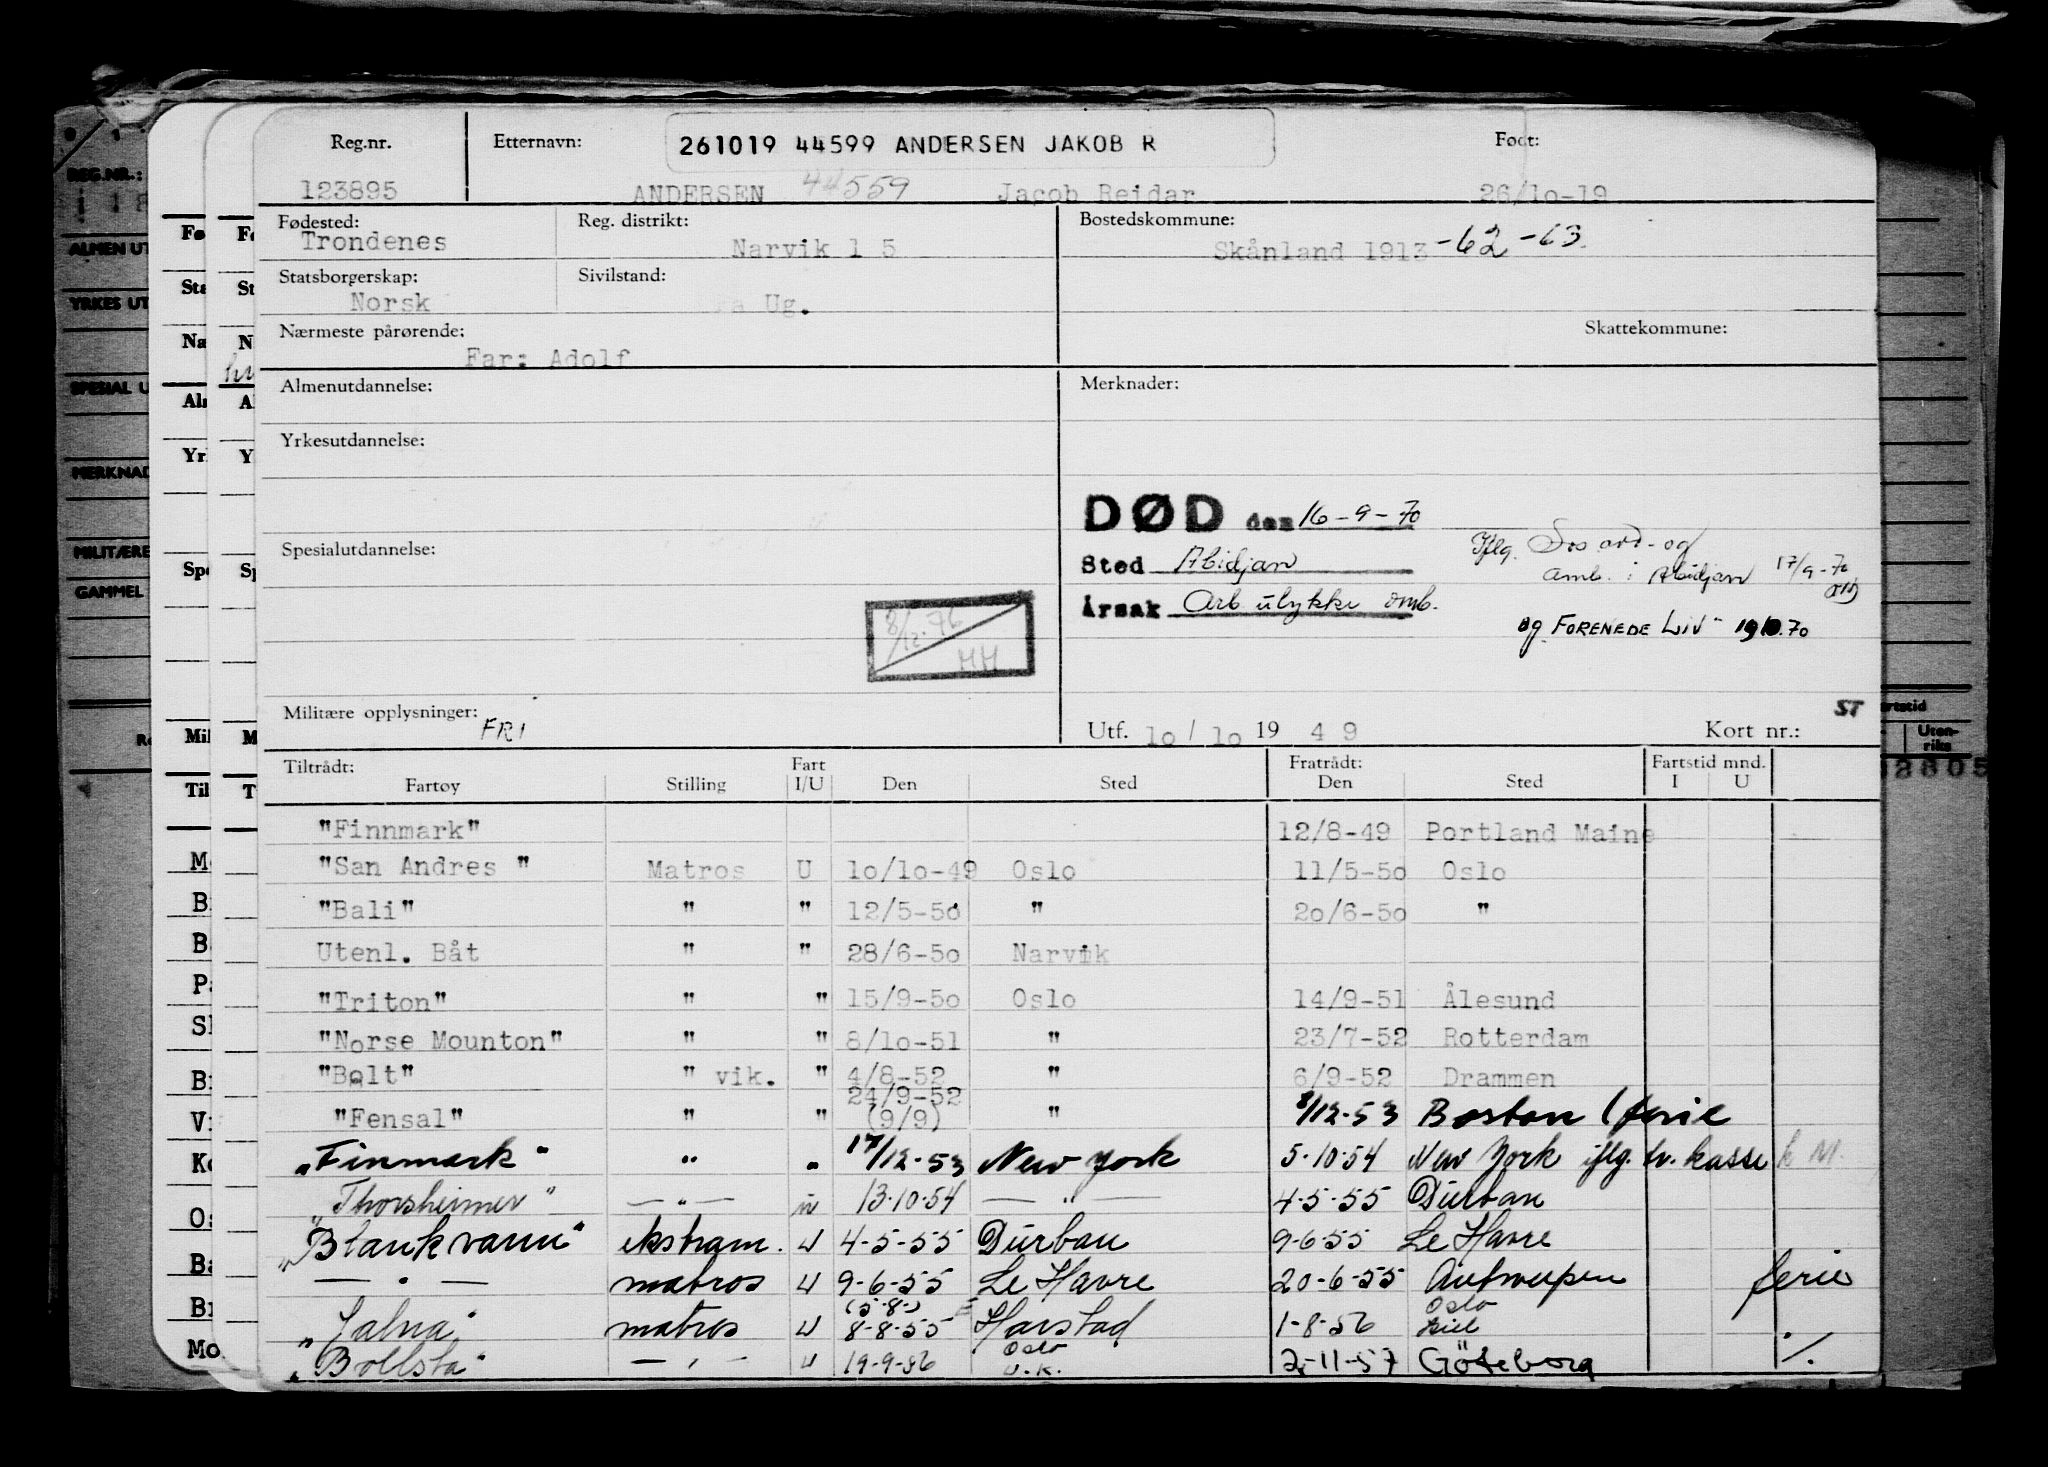 Reg.nr. Etternavn: 261019 44599 ANDERSEN JAKOB R Født:
123895 ANDERSEN 44559 Jacob Reidar 26/10-19
Fødested: Reg. distrikt: Bostedskommune:
Trondenes Narvik 1 5 Skånland 1913 -62 -63
Statsborgerskap: Sivilstand:
Norsk Ug.
Nærmeste pårørende: Skattekommune:
Far: Adolf
Almenutdannelse: Merknader:
Yrkesutdannelse:
DØD den 16-9-70
Spesialutdannelse: Iflg. Sos avd- og
Sted Abidjan amb. i Abidjan 17/9-70
Årsak Arb ulykke omb.
8/12.76 og FORENEDE LIV
MM
Militære opplysninger: FRI Utf. 10/10 19 49 Kort nr.: ST
Tiltrådt: Fart Fratrådt: Fartstid mnd.
Fartøy Stilling I/U Den Sted Den Sted I U
"Finnmark" 12/8-49 Portland Maine
"San Andres " Matros U 10/10-49 Oslo 11/5-50 Oslo
"Bali" " " 12/5-50 " 20/6-50 "
Utenl. Båt " " 28/6-50 Narvik
"Triton" " " 15/9-50 Oslo 14/9-51 Ålesund
"Norse Mounton" " " 8/10-51 " 23/7-52 Rotterdam
"Bolt" " vik. " 4/8-52 " 6/9-52 Drammen
24/9-52
"Fensal" " " (9/9) " 8/12-53 Boston (ferie
"Finmark" " " 17/12-53 New York 5-10-54 New York iflg. tr. kasse
"Thorsheimer" — " — u 13-10-54 — " — 4-5-55 Durban
"Blankvann" ekstram. U 4-5-55 Durban 9-6-55 Le Havre
— " — matros U 9-6-55 Le Havre 20-6-55 Antwerpen ferie
(5-8-) Oslo
"Jalna" matros U 8-8-55 Harstad 1-8-56 Kiel
Oslo
"Bollsta" — " — U 19-9-56 u.k. 2-11-57 Göteborg ./.